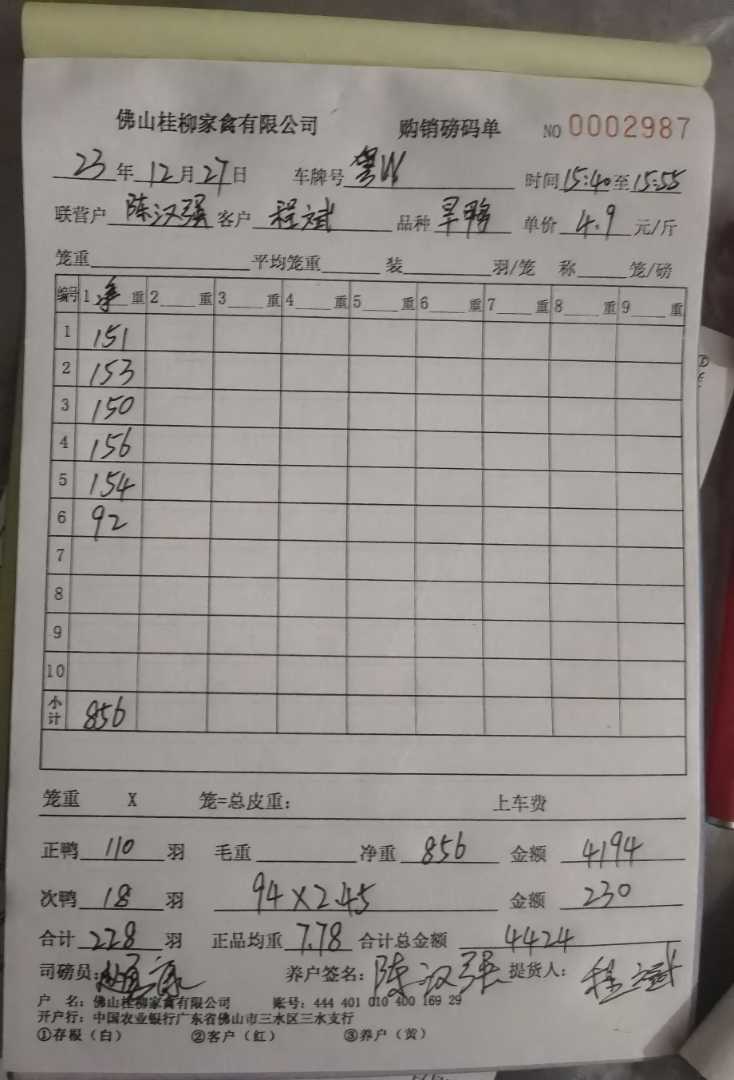 佛山桂柳家禽有限公司 购销磅码单 NO 0002987
23年12月27日 车牌号 粤W 时间15:40至15:55
联营户 陈汉强 客户 程斌 品种 旱鸭 单价 4.9 元/斤
笼重 平均笼重 装 羽/笼 称 笼/磅
编号 1 净重 2 重 3 重 4 重 5 重 6 重 7 重 8 重 9 重
1 151
2 153
3 150
4 156
5 154
6 92
7
8
9
10
小计 856
笼重 X 笼=总皮重: 上车费
正鸭 110 羽 毛重 净重 856 金额 4194
次鸭 18 羽 94×2.45 金额 230
合计 228 羽 正品均重 7.78 合计总金额 4424
司磅员: 养户签名: 陈汉强 提货人: 程斌
户 名: 佛山桂柳家禽有限公司 账号: 444 401 010 400 169 29
开户行: 中国农业银行广东省佛山市三水区三水支行
①存根(白) ②客户(红) ③养户(黄)